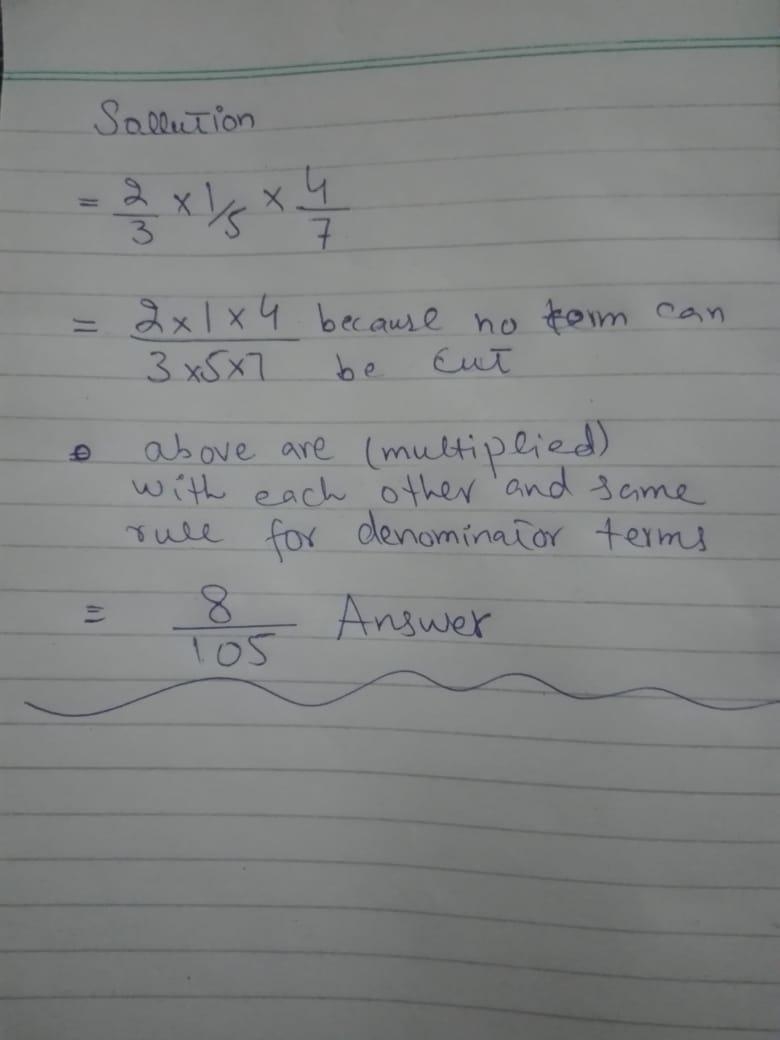 Sallution
= 2/3 × 1/5 × 4/7
= 2×1×4/3×5×7 because no term can
be cut
above are (multiplied)
with each other and same
rule for denominator terms
= 8/105 Answer